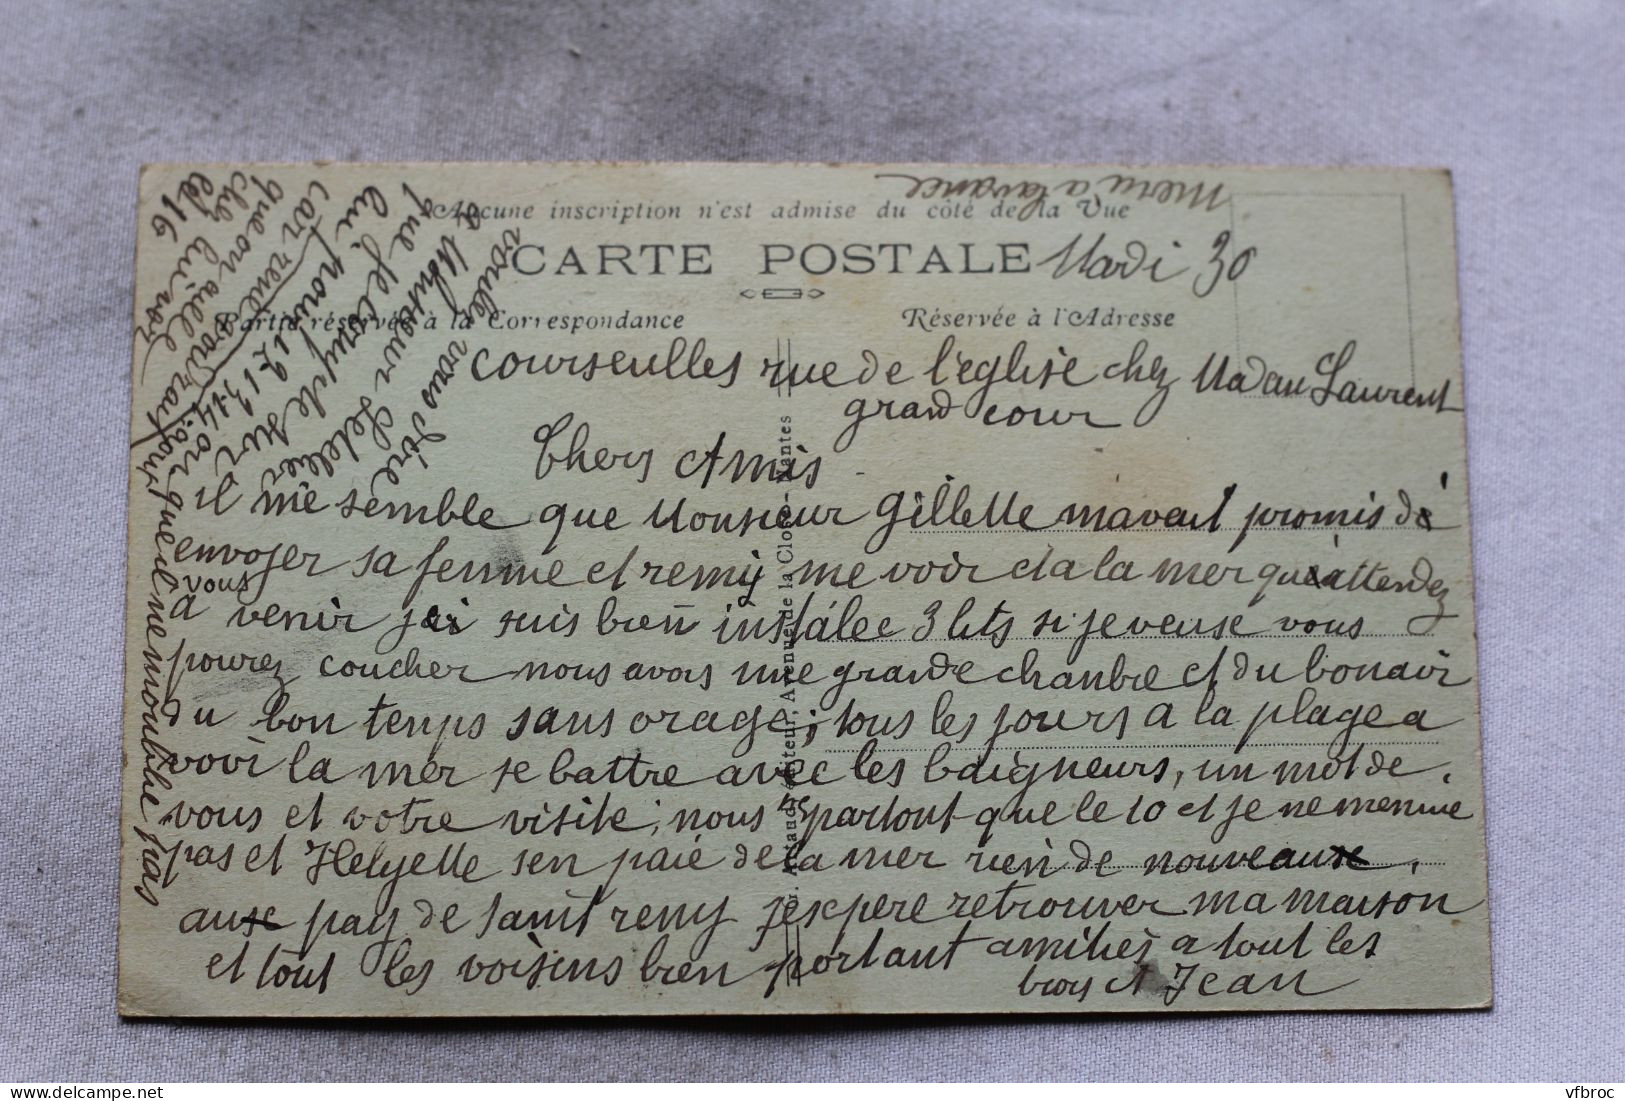 Aucune inscription n'est admise du côté de la Vue
CARTE POSTALE
Partie réservée à la Correspondance
Réservée à l'Adresse
Merci a lavance
Mardi 30
courseulles rue de l'eglise chez Madau Laurent
grand cour
Chers Amis
il me semble que Monsieur Gillette mavait promis de
envoyer sa femme et remy me voir et a la mer que attendez
vous
a venir jai suis bien installee 3 lits si je veuse vous
pourez coucher nous avons une grande chambre et du bon air
du bon temps sans orage; tous les jours a la plage a
voir la mer se battre avec les baigneurs, un mot de
vous et votre visite; nous ne partout que le 10 et je ne mennuie
pas et Helyette sen paie de la mer rien de nouveaux.
aux pay de saint remy jexpere retrouver ma maison
et tout les voisins bien portant amities a tout les
trois et Jean
voulez vous dire
a Monsieur Lelier
que je compte sur
lui pour
car
que on aille
chez lui voir
le 16
que il ne moublie pas
Édit. Avenue de la Close - Nantes